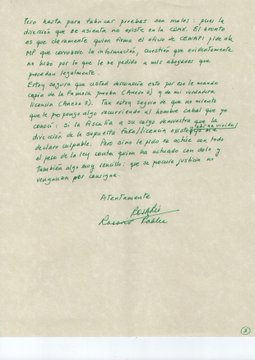 Pero hasta para fabricar pruebas son malos: pues la
dirección que se asienta no existe en la CDMX. El asunto
es que claramente quien firma el oficio de CENAPI pide al
MP que corrobore la información, cuestión que evidentemente
no hizo por lo que le he pedido a mis abogados que
procedan legalmente.
Estoy segura que usted desconocía esto por eso le mando
copia de la famosa prueba (Anexo 2) y de mi verdadera
licencia (Anexo 3). Tan estoy segura de que no miento
que le propongo algo recurriendo al hombre cabal que yo
conocí: si la Fiscalía a su cargo demuestra que la
dirección de la supuesta falsa licencia existe yo me
declaro culpable. Pero sino le pido se actúe con todo
el peso de la ley contra quien ha actuado con dolo y
también algo muy sencillo: que se procure justicia no
venganza por consigna.
Atentamente
Rosario Robles